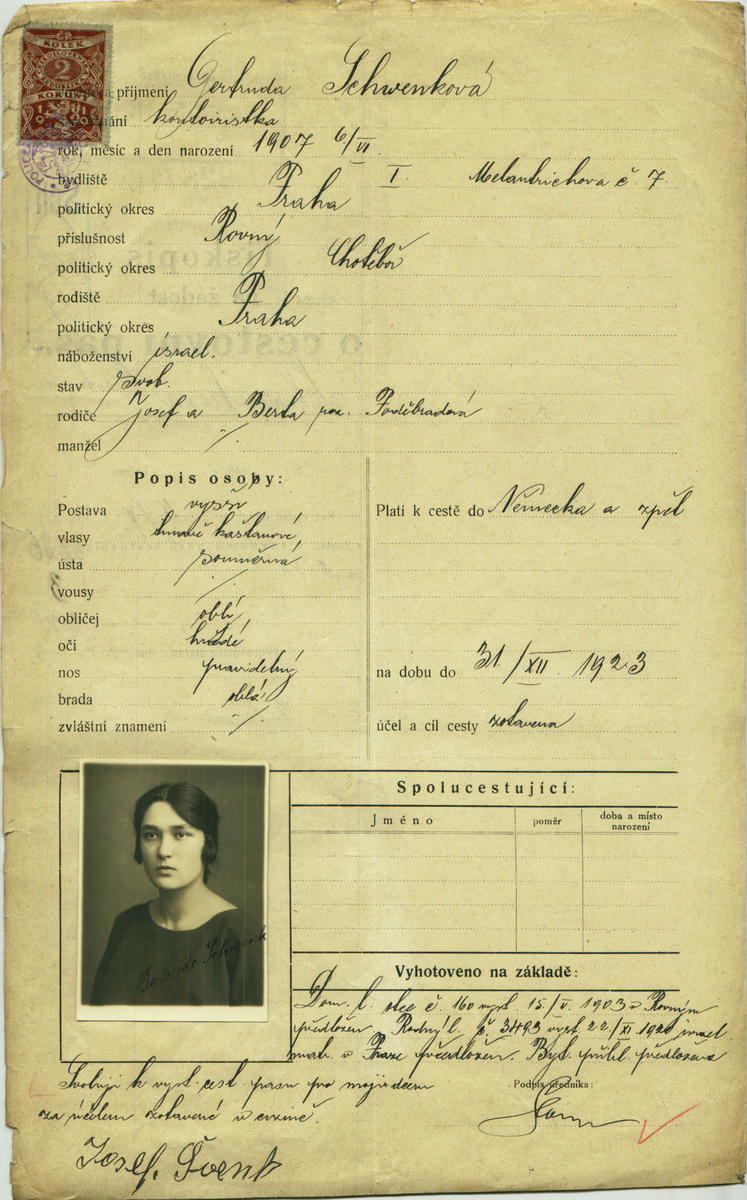 ČP
KOLEK
2
KORUNY
1919
příjmení Gertruda Schwenková
kontoiristka
rok, měsíc a den narození 1907 6/VI
bydliště Praha I. Melantrichova č. 7.
politický okres
příslušnost Rovný
politický okres Chotěboř
rodiště Praha
politický okres
náboženství israel.
stav svob.
rodiče Josef a Berta roz. Poděbradová
manžel ./.
Popis osoby:
Postava vyšší
vlasy tmavě kaštanové
ústa souměrná
vousy ./.
obličej oblý
oči hnědé
nos pravidelný
brada oblá
zvláštní znamení ./.
Platí k cestě do Německa a zpět
na dobu do 31/XII 1923
účel a cíl cesty zotavena
Gertrude Schwenk
Spolucestující:
Jméno poměr doba a místo narození
Vyhotoveno na základě:
Dom. l. otce č. 160 vyst. 15./V. 1903 v Rovným
předložen. Rodný l. č. 3493 vyst 22/XI 1920 israel
mat. v Praze předložen. Byt. přihl. předložena
Podpis úředníka:
Svoluji k vyst. cest. pasu pro moji dceru
za účelem zotavené v cizině.
Josef Švenk